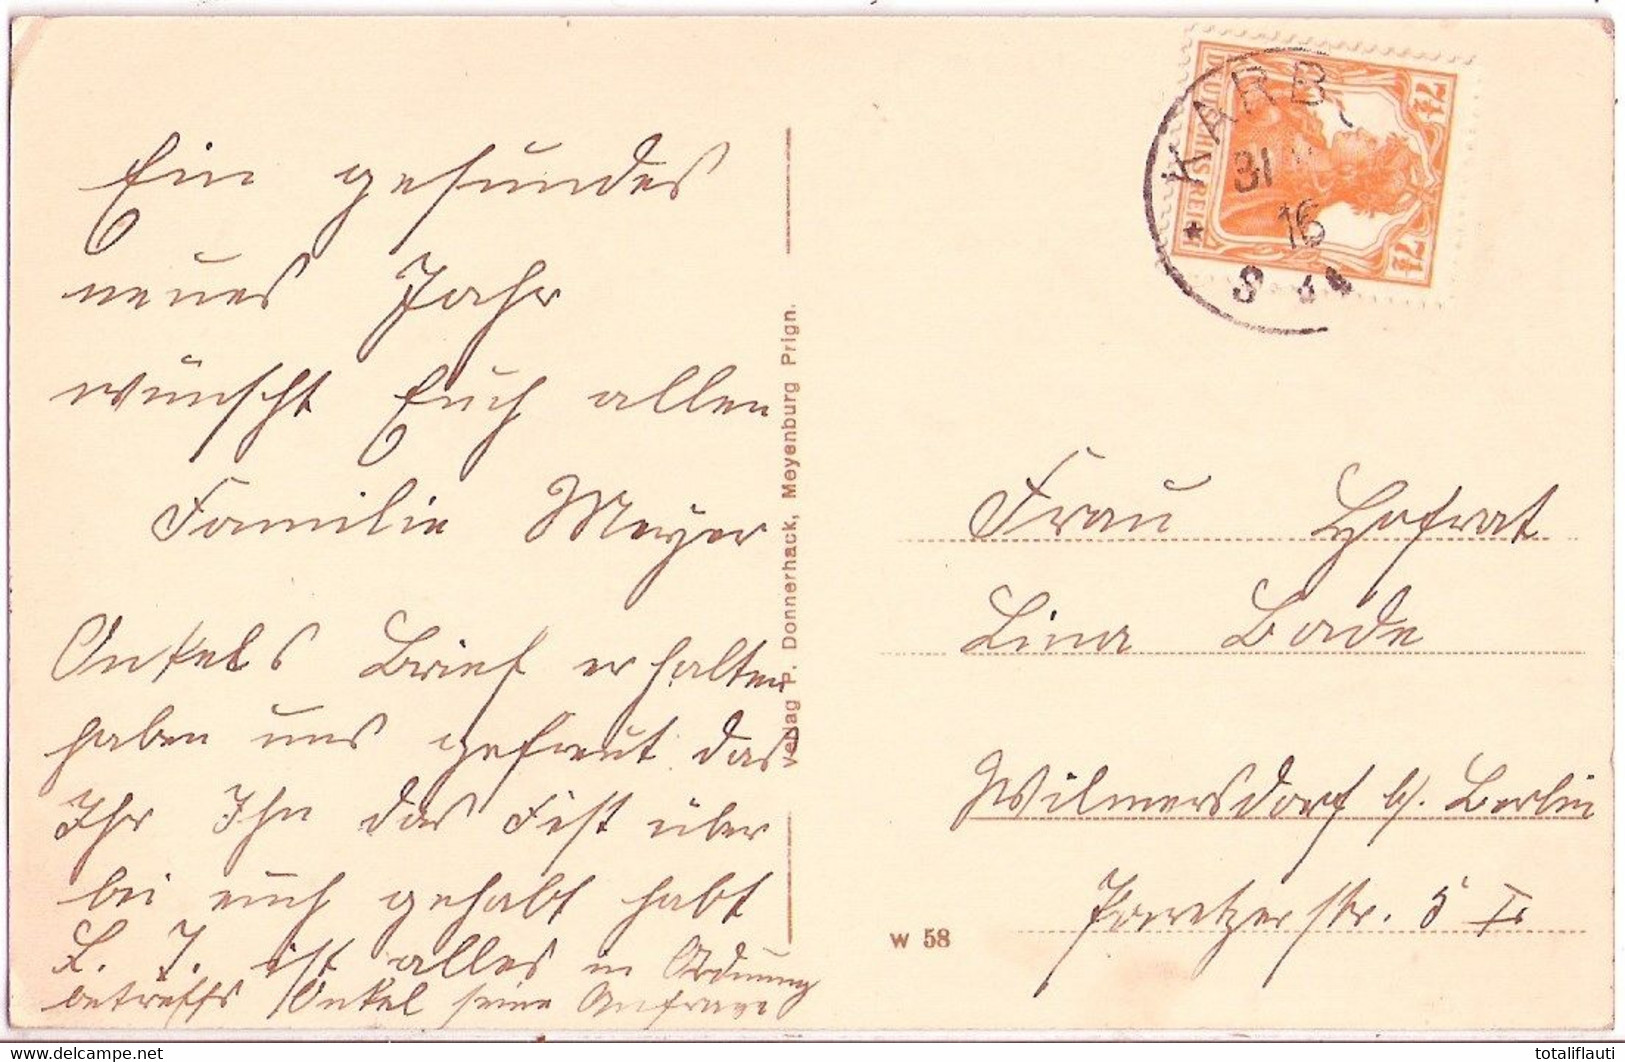 Ein gesundes
neues Jahr
wünscht Euch allen
Familie Meyer
Onkels Brief erhalten
haben uns gefreut das
Ihr Ihn das Fest über
bei euch gehabt habt
L. J. ist alles in Ordnung
betreffs Onkel seine Anfrage
Verlag P. Donnerhack, Meyenburg Prign.
DEUTSCHES REICH
7½ 7½
* KARB
31
16
Frau Hofrat
Lina Bade
Wilmersdorf b/. Berlin
Paretzerstr. 5 II
W 58
totaliflauti
delcampe.net